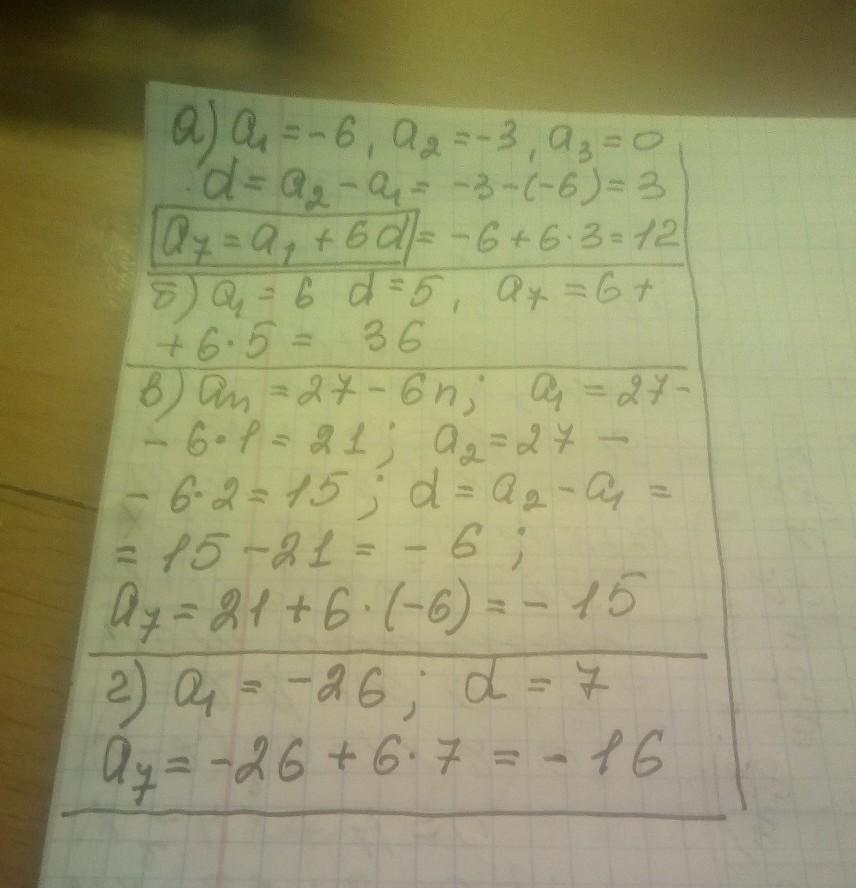 а) a₁ = -6, a₂ = -3, a₃ = 0
d = a₂ - a₁ = -3 - (-6) = 3
a₇ = a₁ + 6d = -6 + 6·3 = 12
б) a₁ = 6 d = 5, a₇ = 6 +
+ 6·5 = 36
в) aₙ = 27 - 6n; a₁ = 27 -
- 6·1 = 21; a₂ = 27 -
- 6·2 = 15; d = a₂ - a₁ =
= 15 - 21 = - 6;
a₇ = 21 + 6·(-6) = - 15
г) a₁ = -26; d = 7
a₇ = -26 + 6·7 = - 16